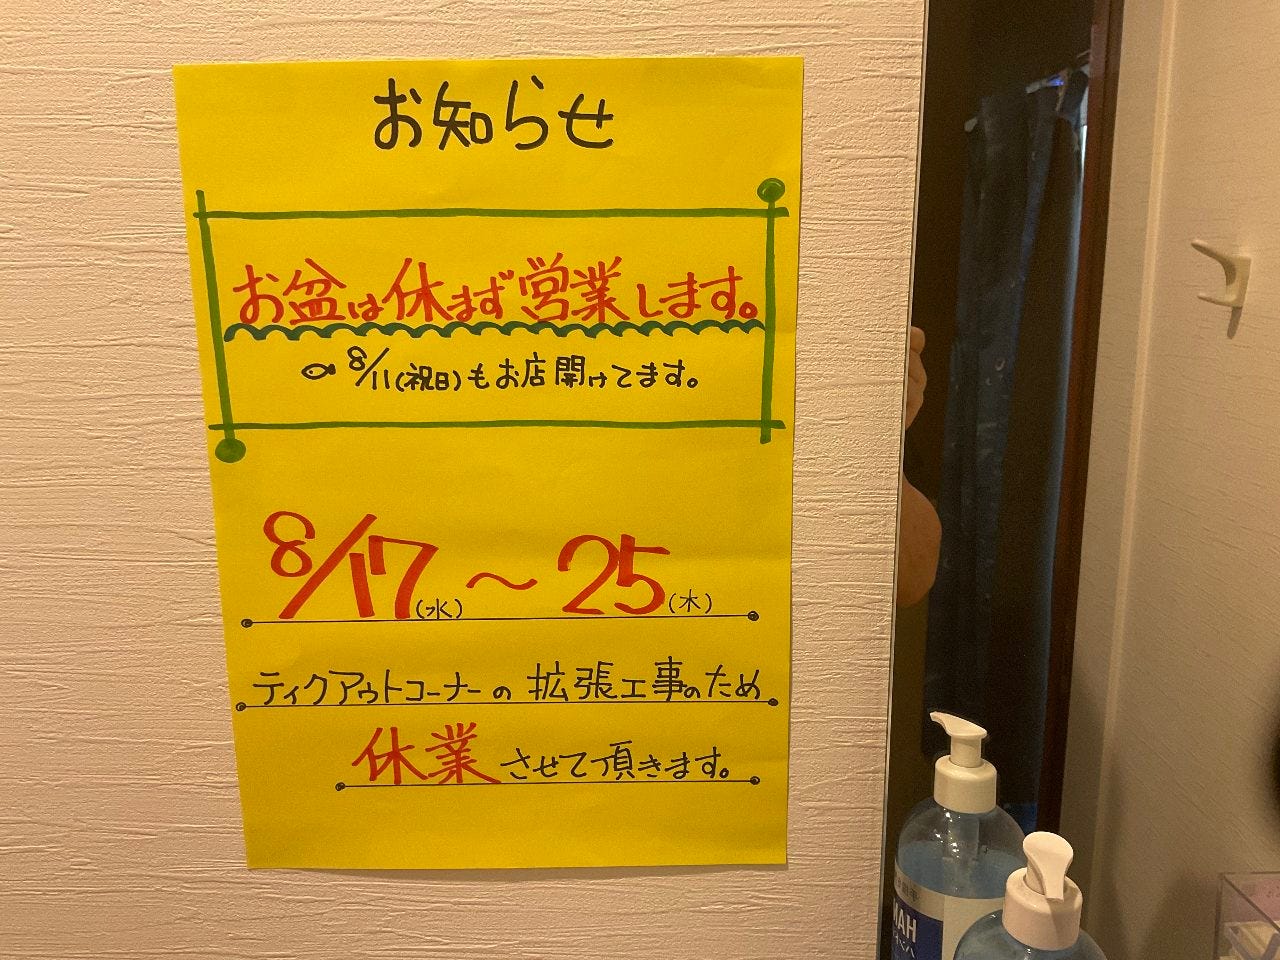 お知らせ
お盆は休まず営業します。
8/11(祝日)もお店開けてます。
8/17(水)～25(木)
ティクアウトコーナーの拡張工事のため
休業させて頂きます。